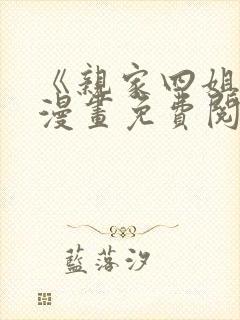 《親家四姐
漫畫免費閱
藍落汐